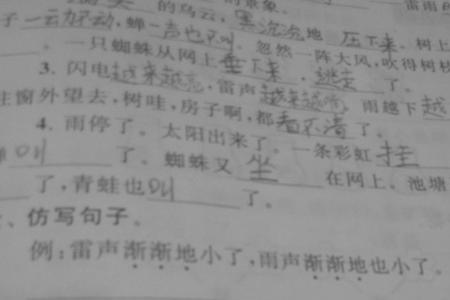 的乌云,黑沉沉地 压下来。树上
子一动不动,蝉一声也不叫。忽然一阵大风,吹得树枝
。一只蜘蛛从网上垂下来,逃走了。
3. 闪电越来越亮,雷声越来越响。雨越下越
往窗外望去,树哇,房子啊,都看不清了。
4. 雨停了。太阳出来了。一条彩虹挂
叫 了。蜘蛛又坐在网上。池塘
了,青蛙也叫 了。
、仿写句子。
例:雷声渐渐地小了,雨声渐渐地也小了。